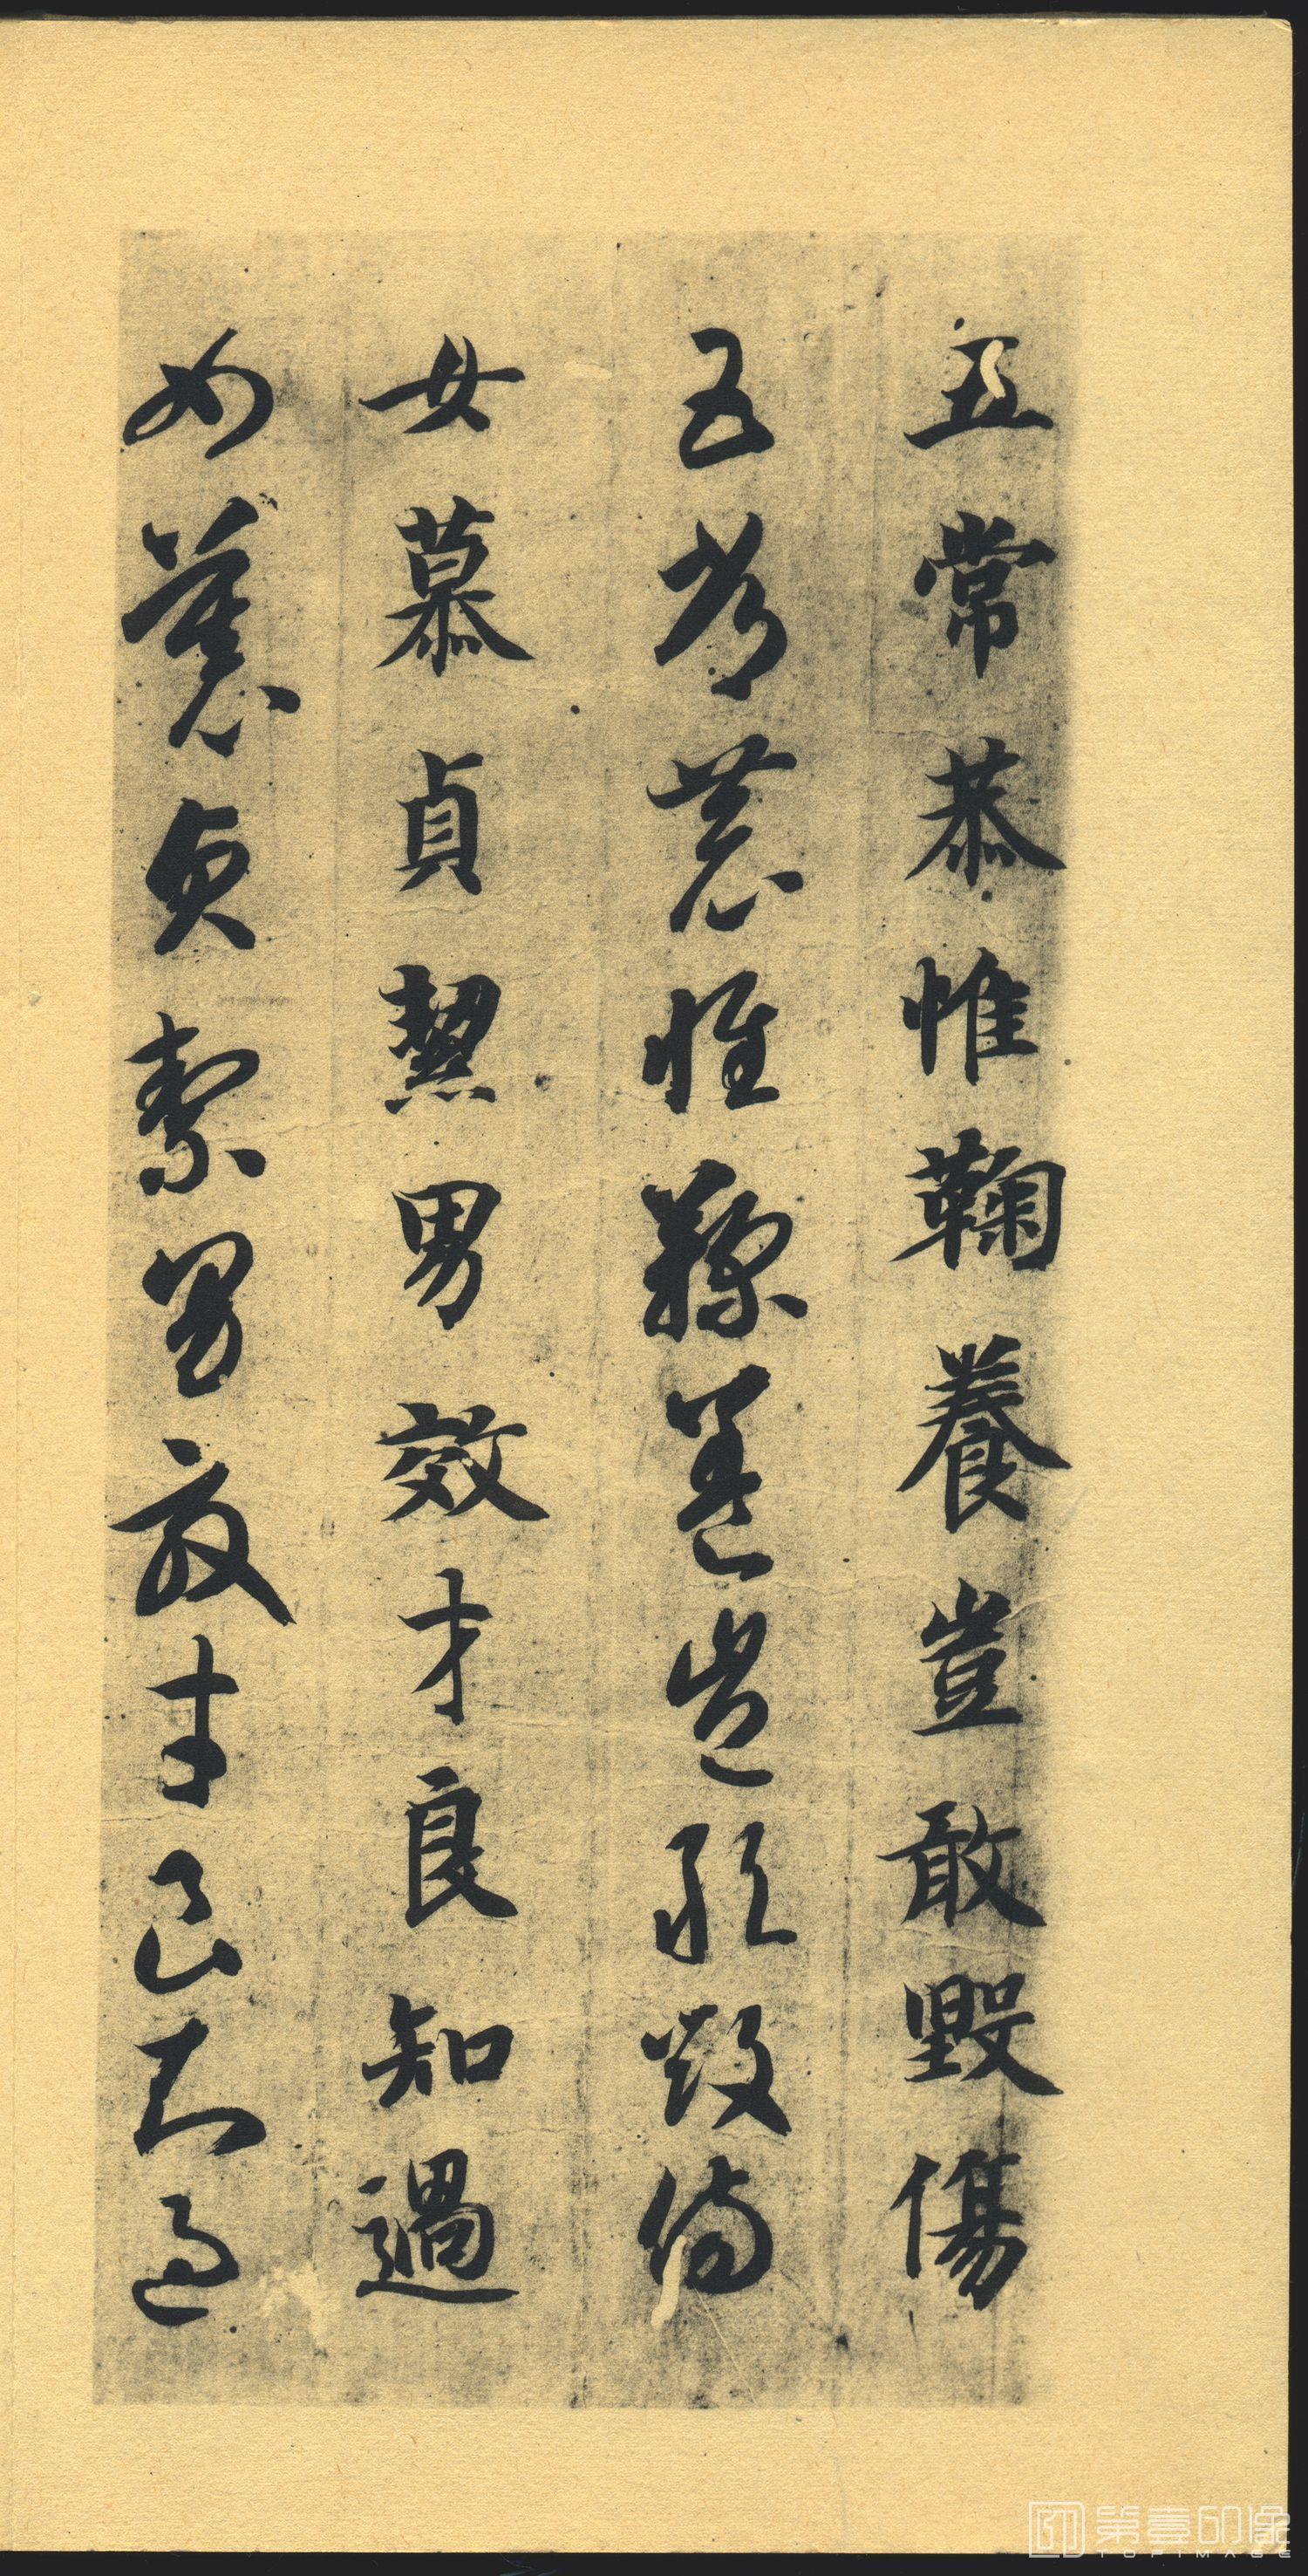 五常恭惟鞠養豈敢毀傷
五常恭惟鞠養豈敢毀傷
女慕貞潔男效才良知過
女慕貞潔男效才良知過
第壹印像
TOPIMAGE